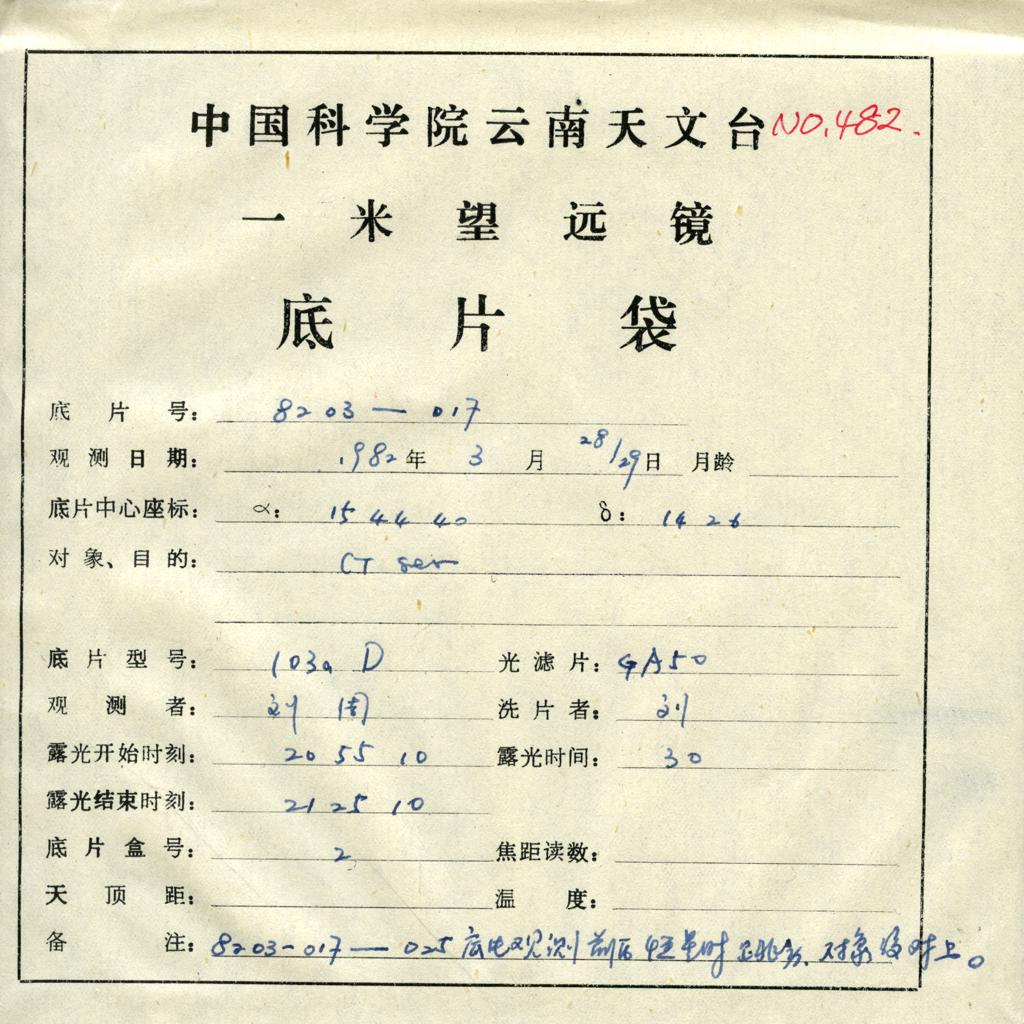 中国科学院云南天文台 NO.482.
一米望远镜
底片袋
底片号: 8203—017
观测日期: 1982年 3月 28/29日 月龄
底片中心座标: α: 15 44 40 δ: 14 26
对象、目的: CT ser
底片型号: 103a D 光滤片: GA50
观测者: 刘 周 洗片者: 刘
露光开始时刻: 20 55 10 露光时间: 30
露光结束时刻: 21 25 10
底片盒号: 2 焦距读数:
天顶距: 温度:
备注: 8203-017—025 底片观测前后 对象没对上。